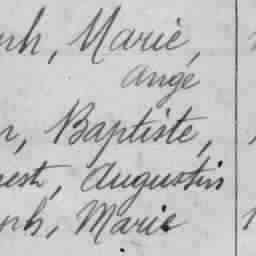 nh, Marie,
Ange
n, Baptiste,
nest, Augustin
nh, Marie